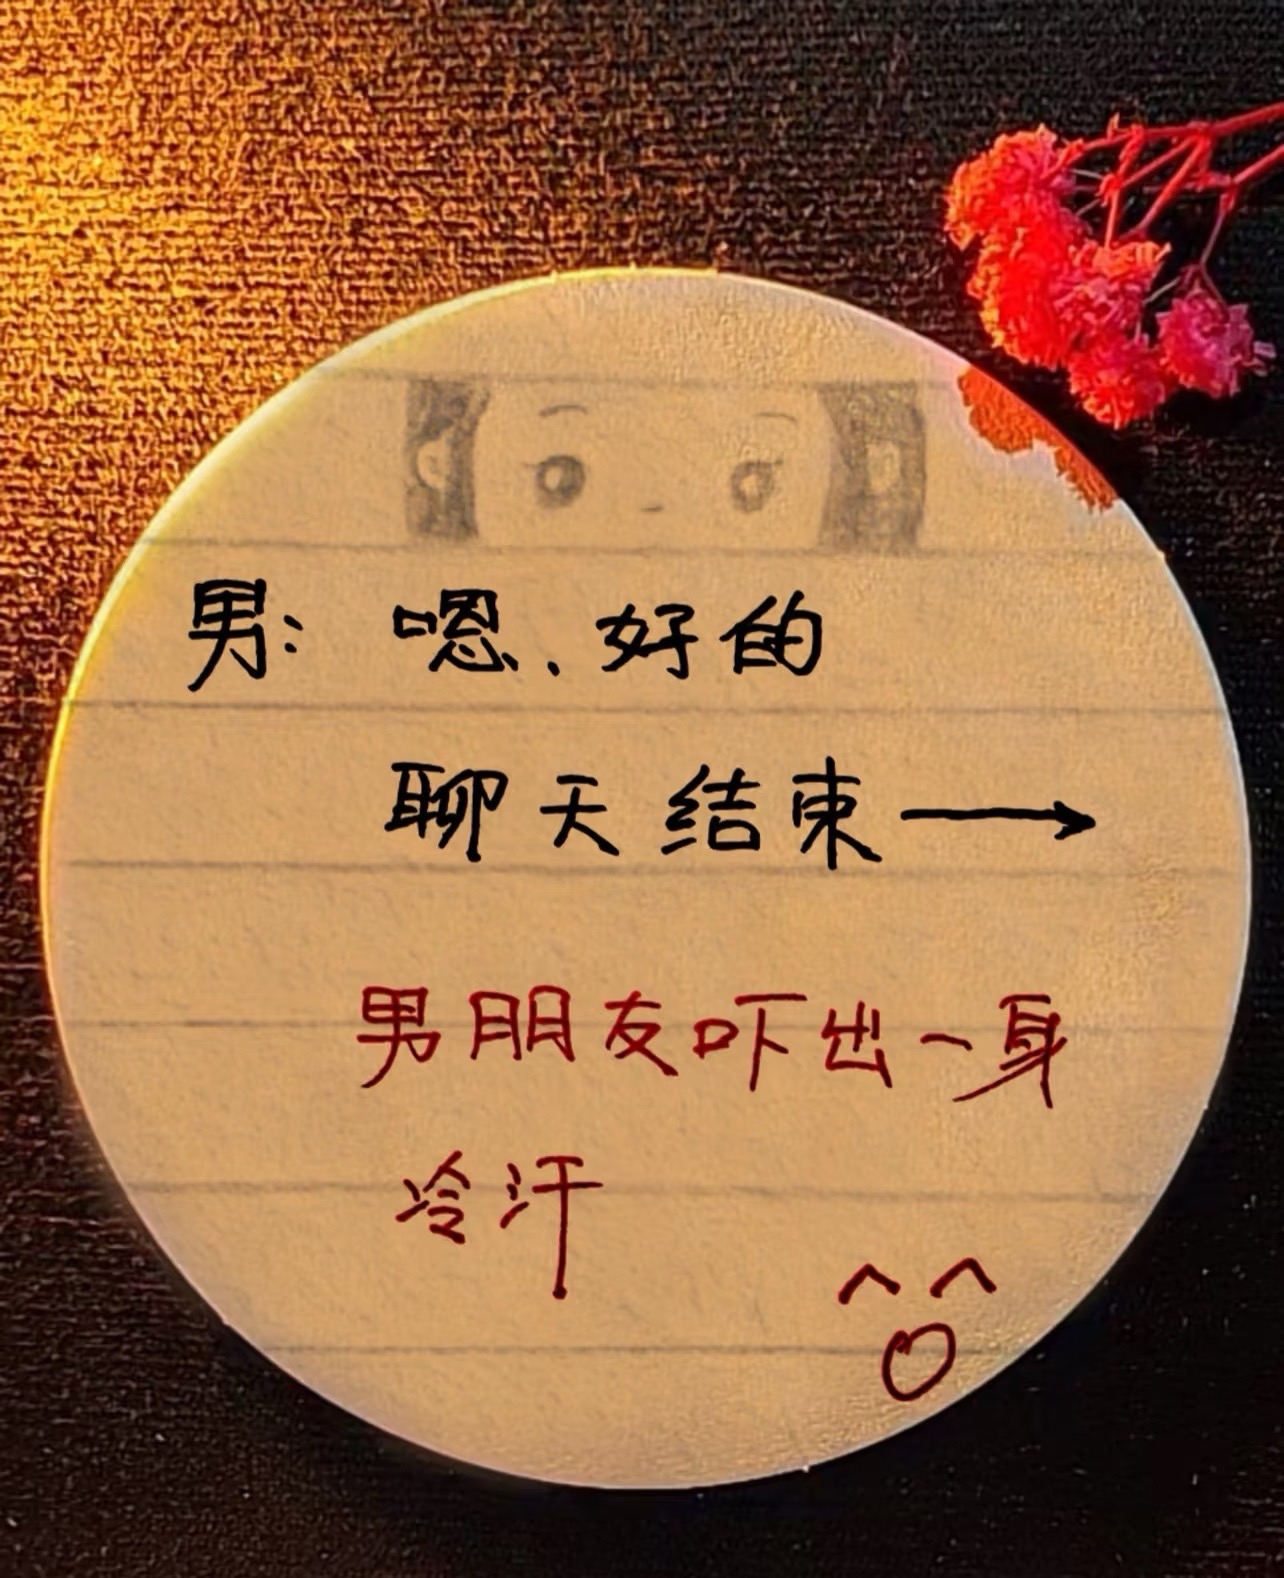 男：嗯、好的
聊天结束→
男朋友吓出一身
冷汗